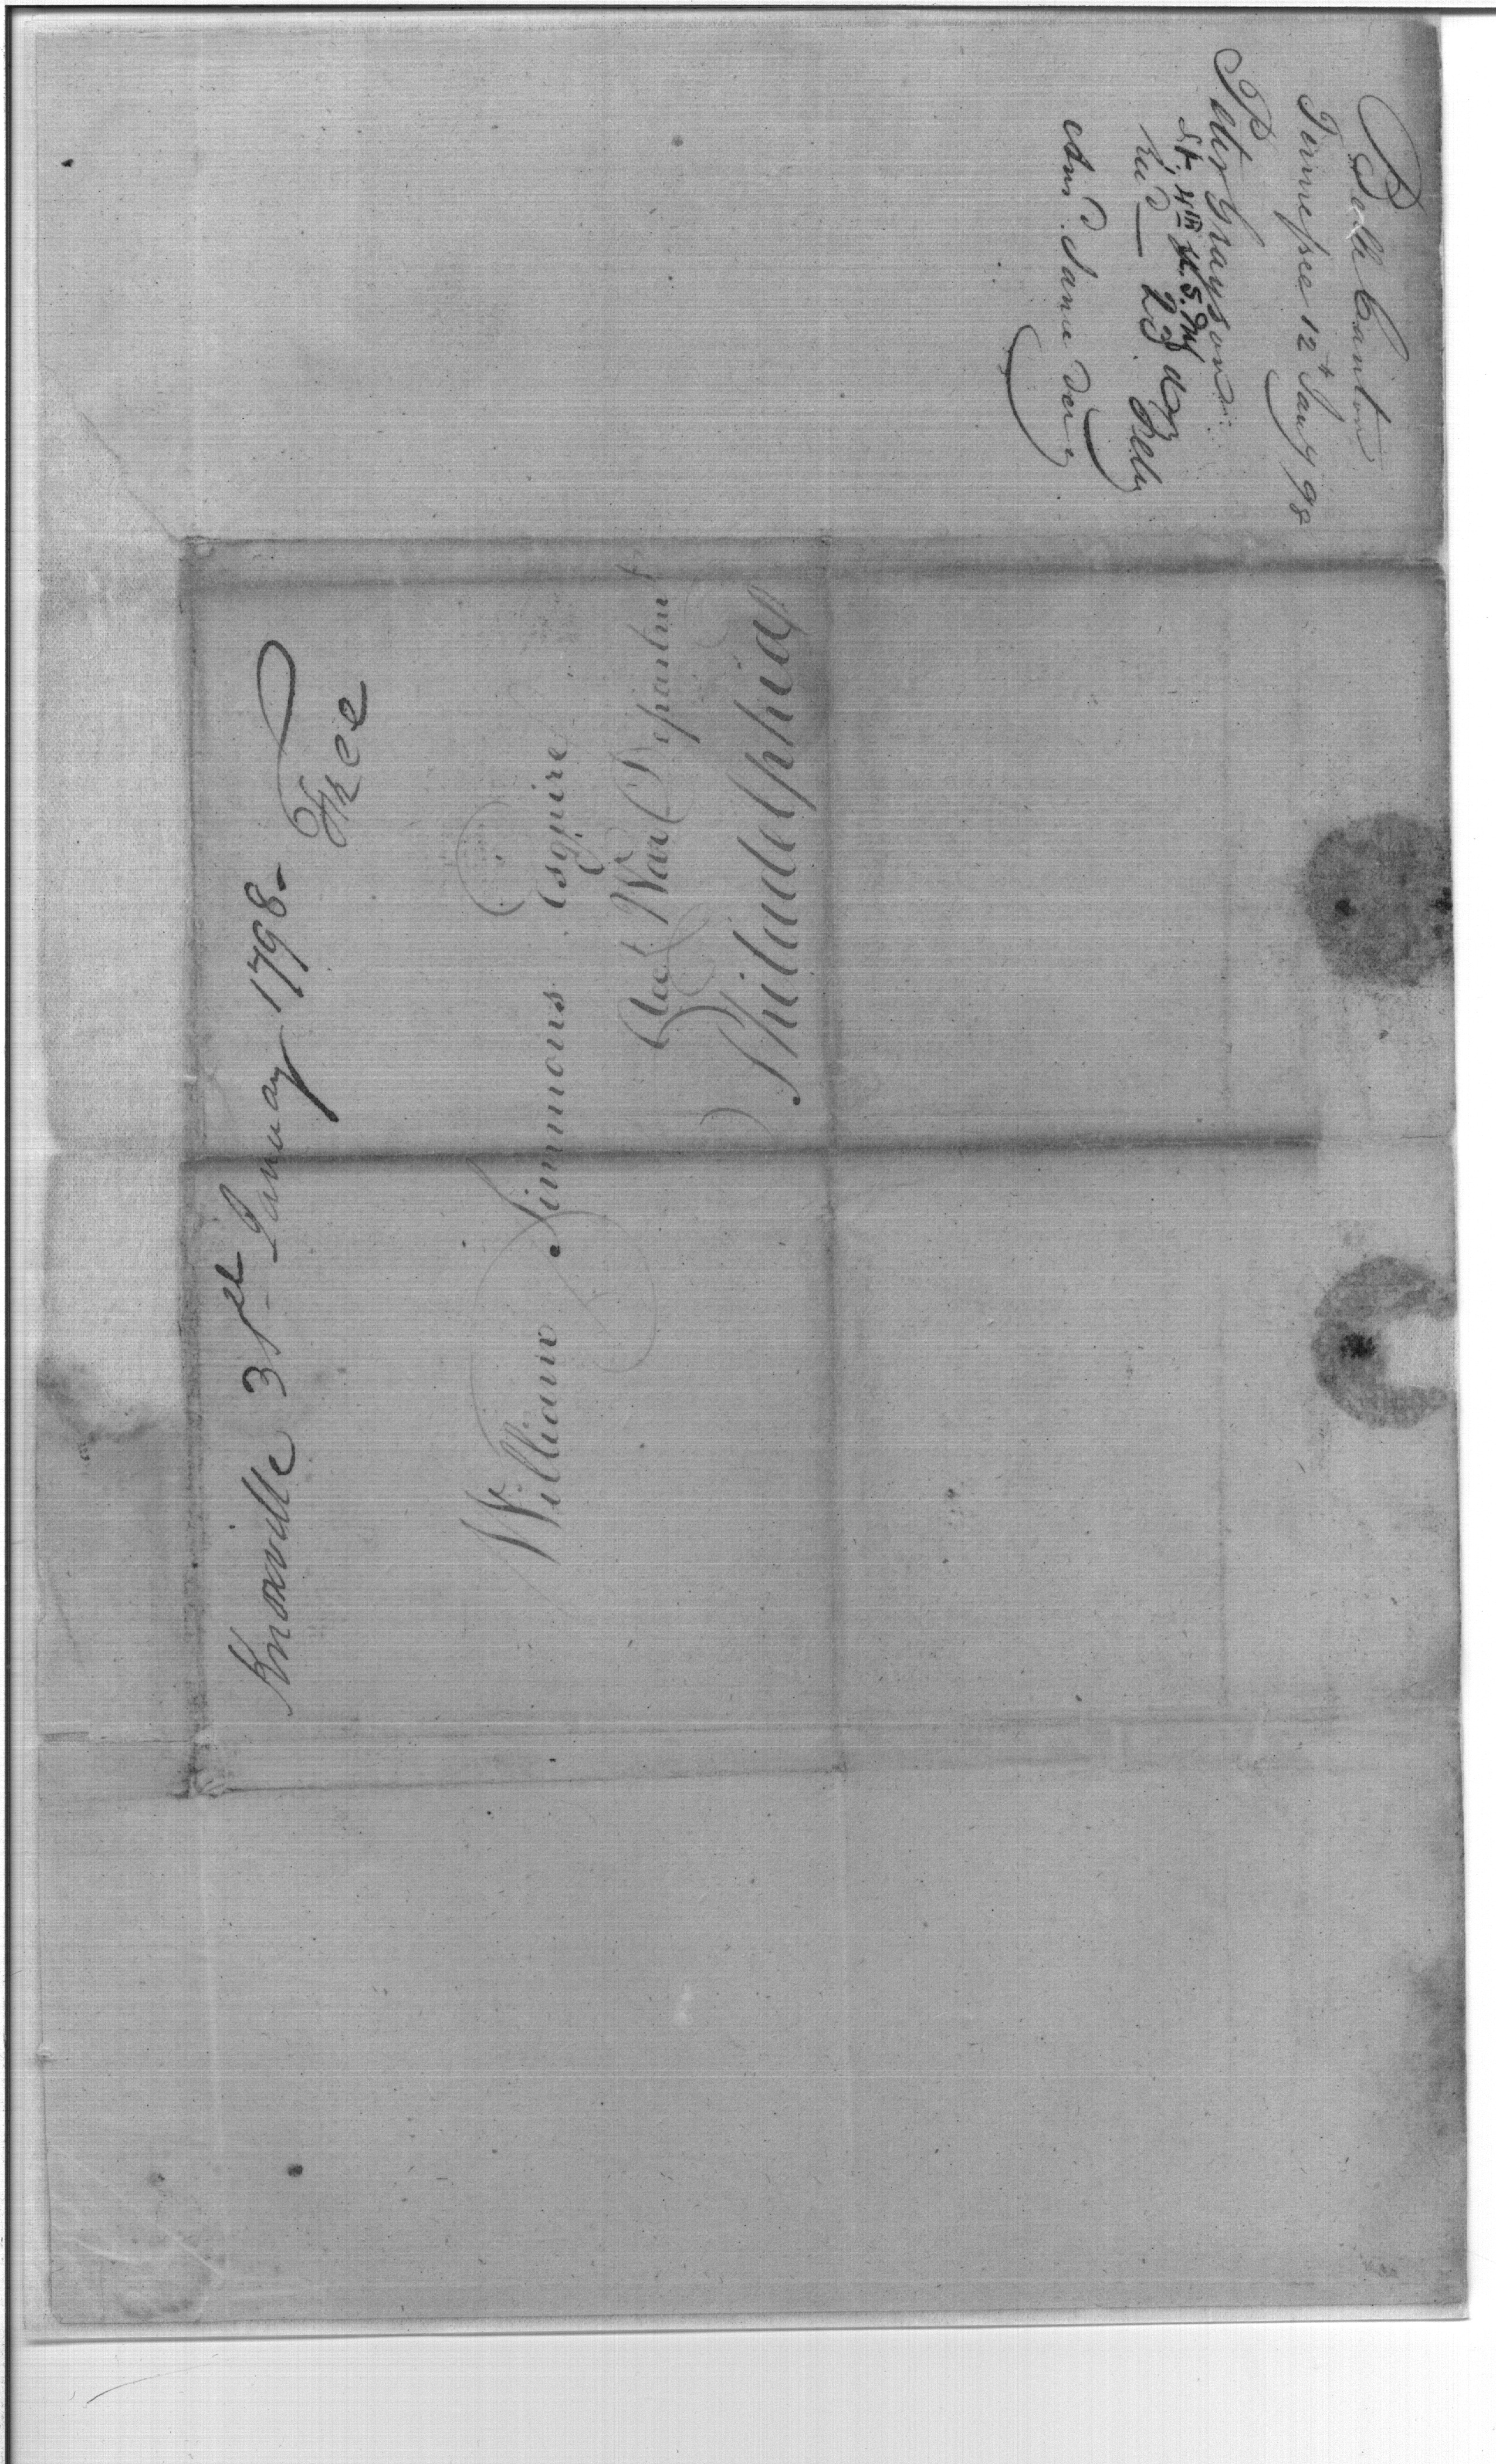 Knoxville 31st January 1798-
Free
William Simmons Esquire
Acct. War Department
Philadelphia
Belle Canton
Tennessee 12t Jany 98
Peter Grayson
Lt. 4th U.S. Rt
Recd — 23d Feby
Ansd. Same day